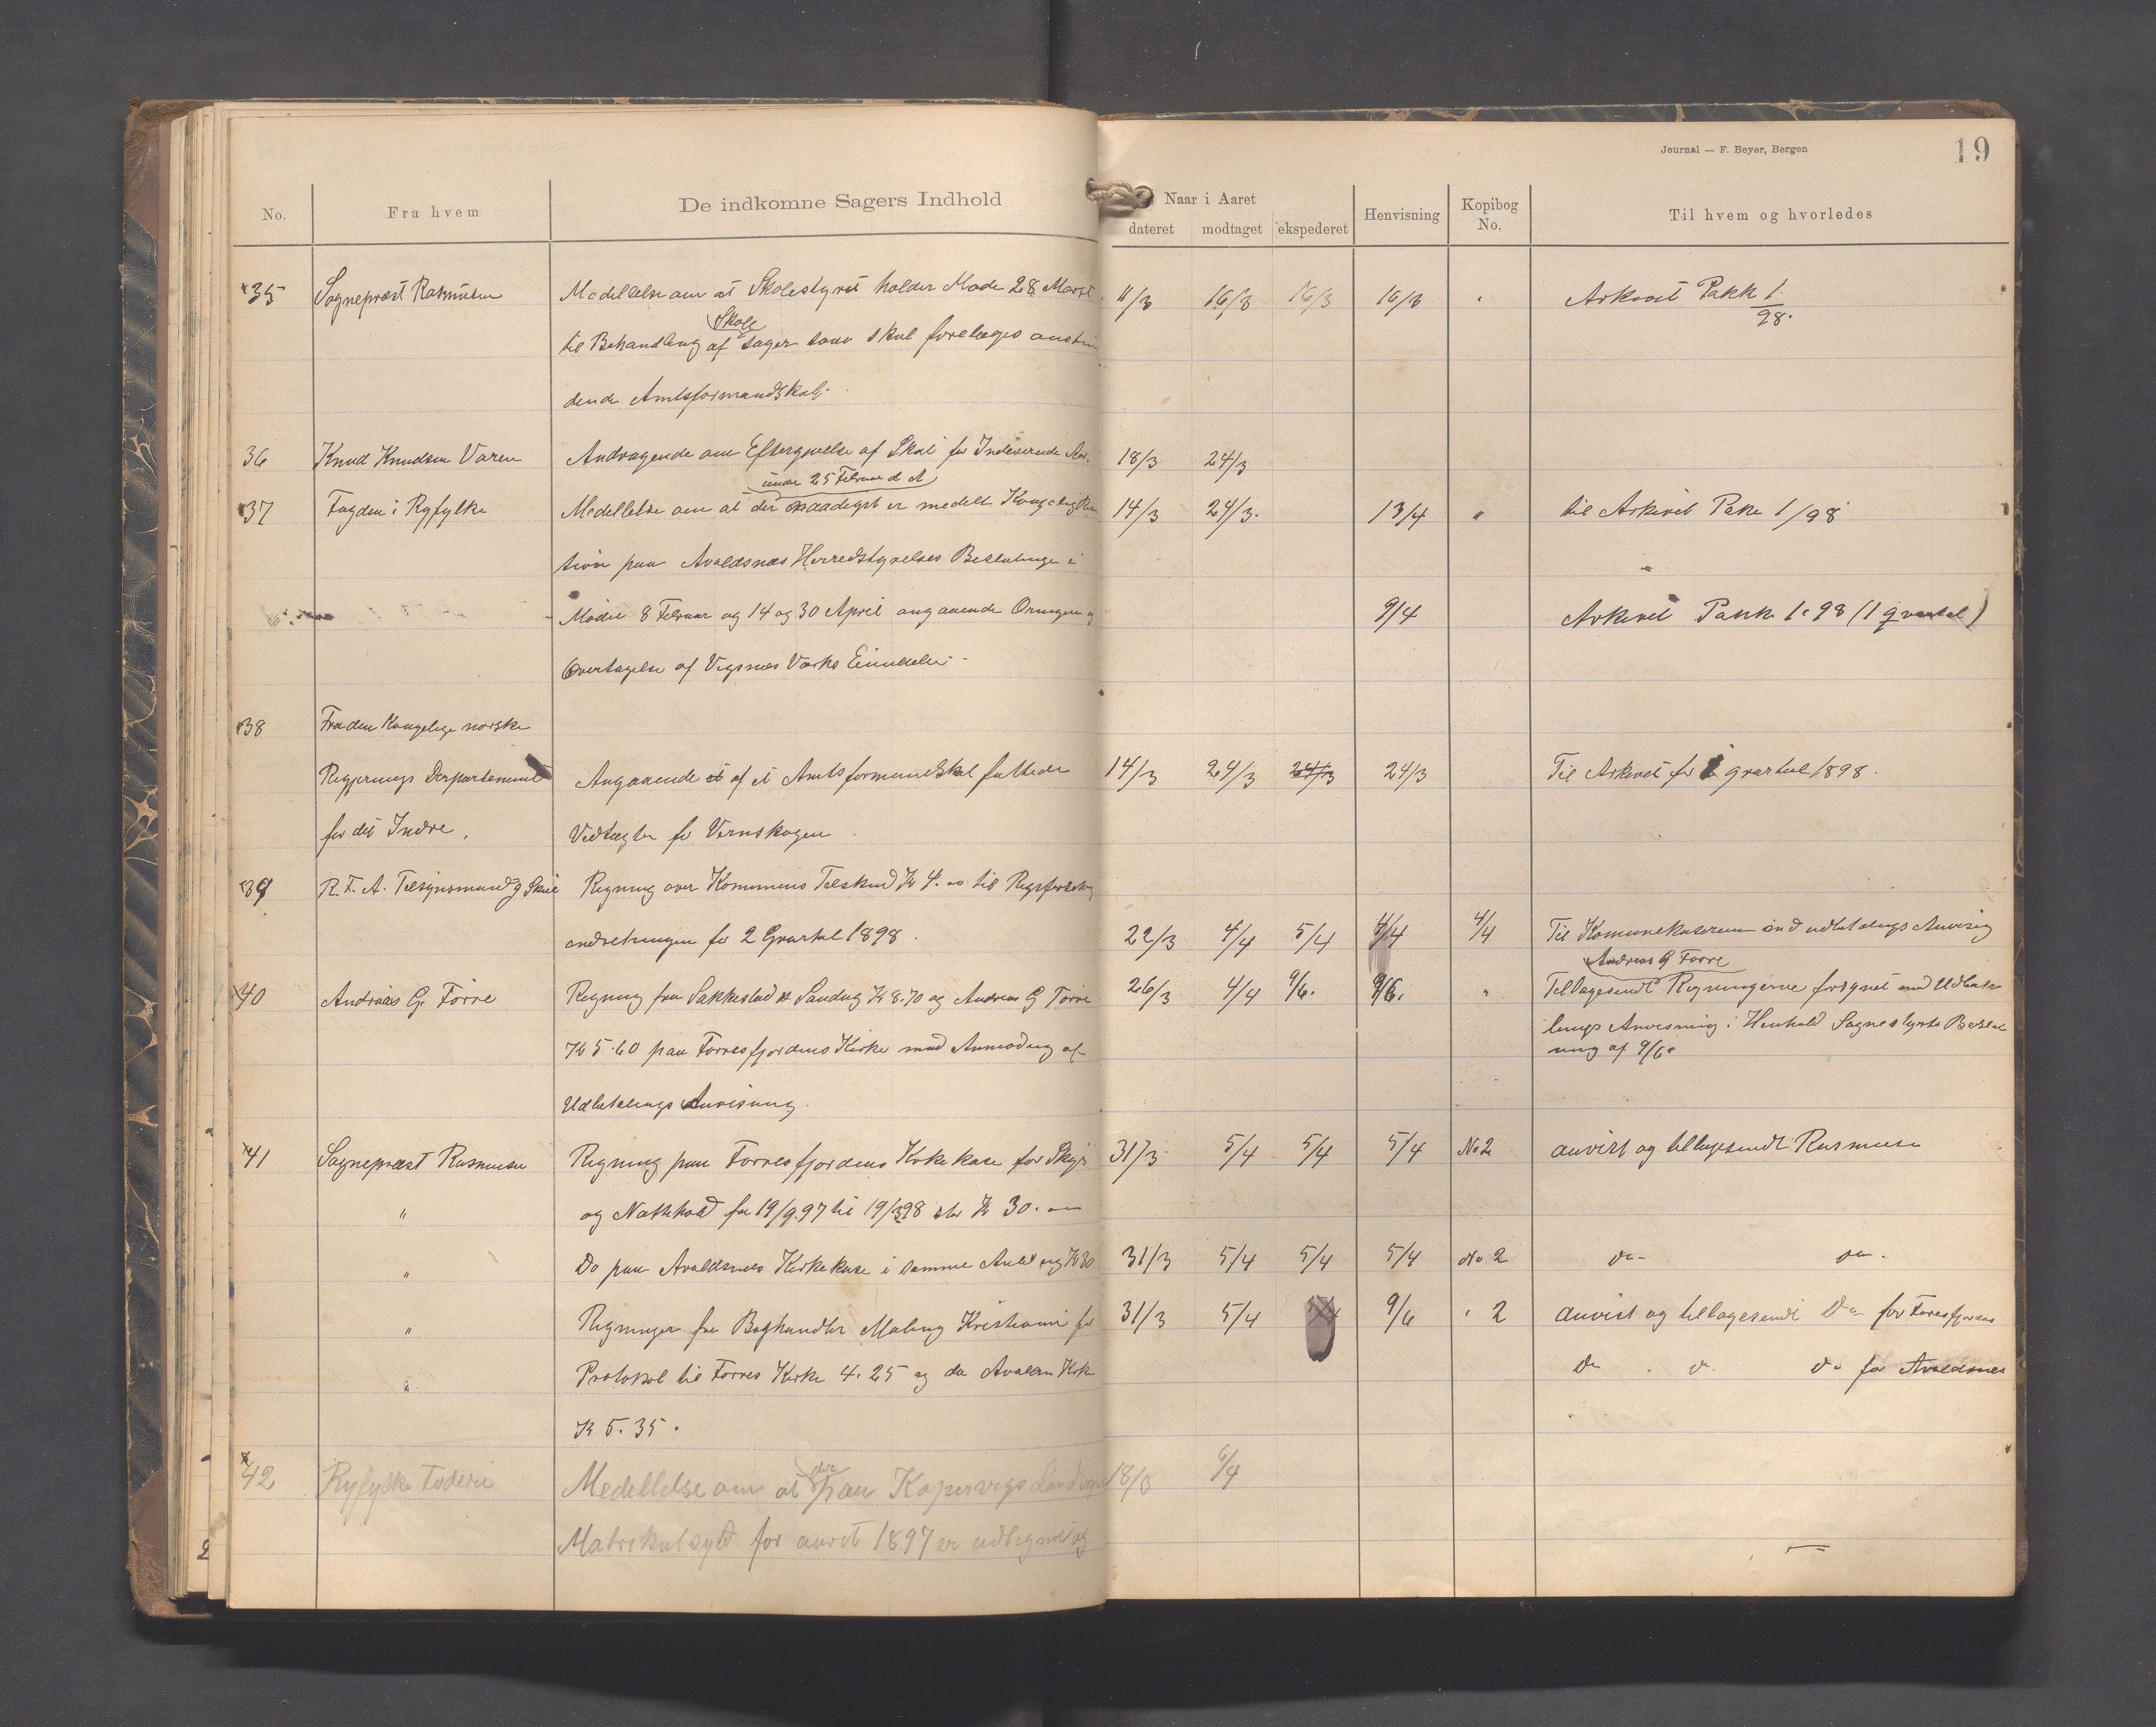 Journal — F. Beyer, Bergen
19
No.
Fra hvem
De indkomne Sagers Indhold
Naar i Aaret
dateret
modtaget
ekspederet
Henvisning
Kopibog No.
Til hvem og hvorledes
35 Sognepræst Rasmusen Meddelelse om at Skolestyret holder Møde 28 Marst 11/3 16/3 16/3 16/3 " Arkivet Pakk 1/98.
til Behandling af Skole sager som skal forelæges anstun
dende Amtsformandskab.
36 Knud Knudsen Varen Andragende om Eftergivelse af Skat for Indeværende Aar. 18/3 24/3
under 25 Februar d A
37 Fogden i Ryfylke Meddellelse om at der naadigst er meddelt Kongelig 14/3 24/3. 13/4 " til Arkivet Pakke 1/98
tion paa Avaldsnæs Herredstyrelses Beslutninger i
Møder 8 Februar og 14 og 30 April angaaende 9/4 Arkivet Pakk 1. 98 (1 qvartal)
Overtagelse af Vigsnes Værks Eiendele.
38 Fra den Kongelige norske
Regjerings Departement Angaaende et af et Amtsformandskab fattede 14/3 24/3 24/3 24/3 Til Arkivet for 1 qvartal 1898.
for det Indre, Vedtægter for Vernskogen
39 R. F. A. Tilsynsmand J Skeie Regning over Kommunens Tilskud Kr 4.00 til Rygsforsikring
indretningen for 2 Qvartal 1898. 22/3 4/4 5/4 4/4 4/4 Til Kommunekasereren med udbetalings Anvisnig
Andreas G Førre
40 Andreas G. Førre Regning fra Sakkestad & Sandvig Kr 8.70 og Andreas G Førre 26/3 4/4 9/6. 9/6. " Tilbagesendt Regningerne forsynet med Udbeta
Kr 5.60 paa Førresfjordens Kirke med Anmodning af lings Anvisning i Henhold Sognestyrets Beslut
ning af 9/6.
Udbetalings Anvisning.
41 Sognepræst Rasmusen Regning paa Førresfjordens Kirkekase for Skyds 31/3 5/4 5/4 5/4 No 2 anvist og tilbagesendt Rasmusen
" og Nattehold fra 19/9.97 til 19/3.98 Kr 30.00
" Do paa Avaldsnes Kirkekase i samme Anledning Kr 30 31/3 5/4 5/4 5/4 No 2 Do- Do.
" Regninger fra Boghandler Malling Kristiania for 31/3 5/4 9/6 " 2 anvist og tilbagesendt Do for Førresfjordens
" Protokol til Førres Kirke 4.25 og do Avaldsn Kirke Do . Do. Do for Avaldsnes
Kr 5.35.
42 Ryfylke Foderi Medellelse om at der paa Kopervigs Landsogn 18/3 6/4
Matrikulskyld for aaret 1897 er udlignet og